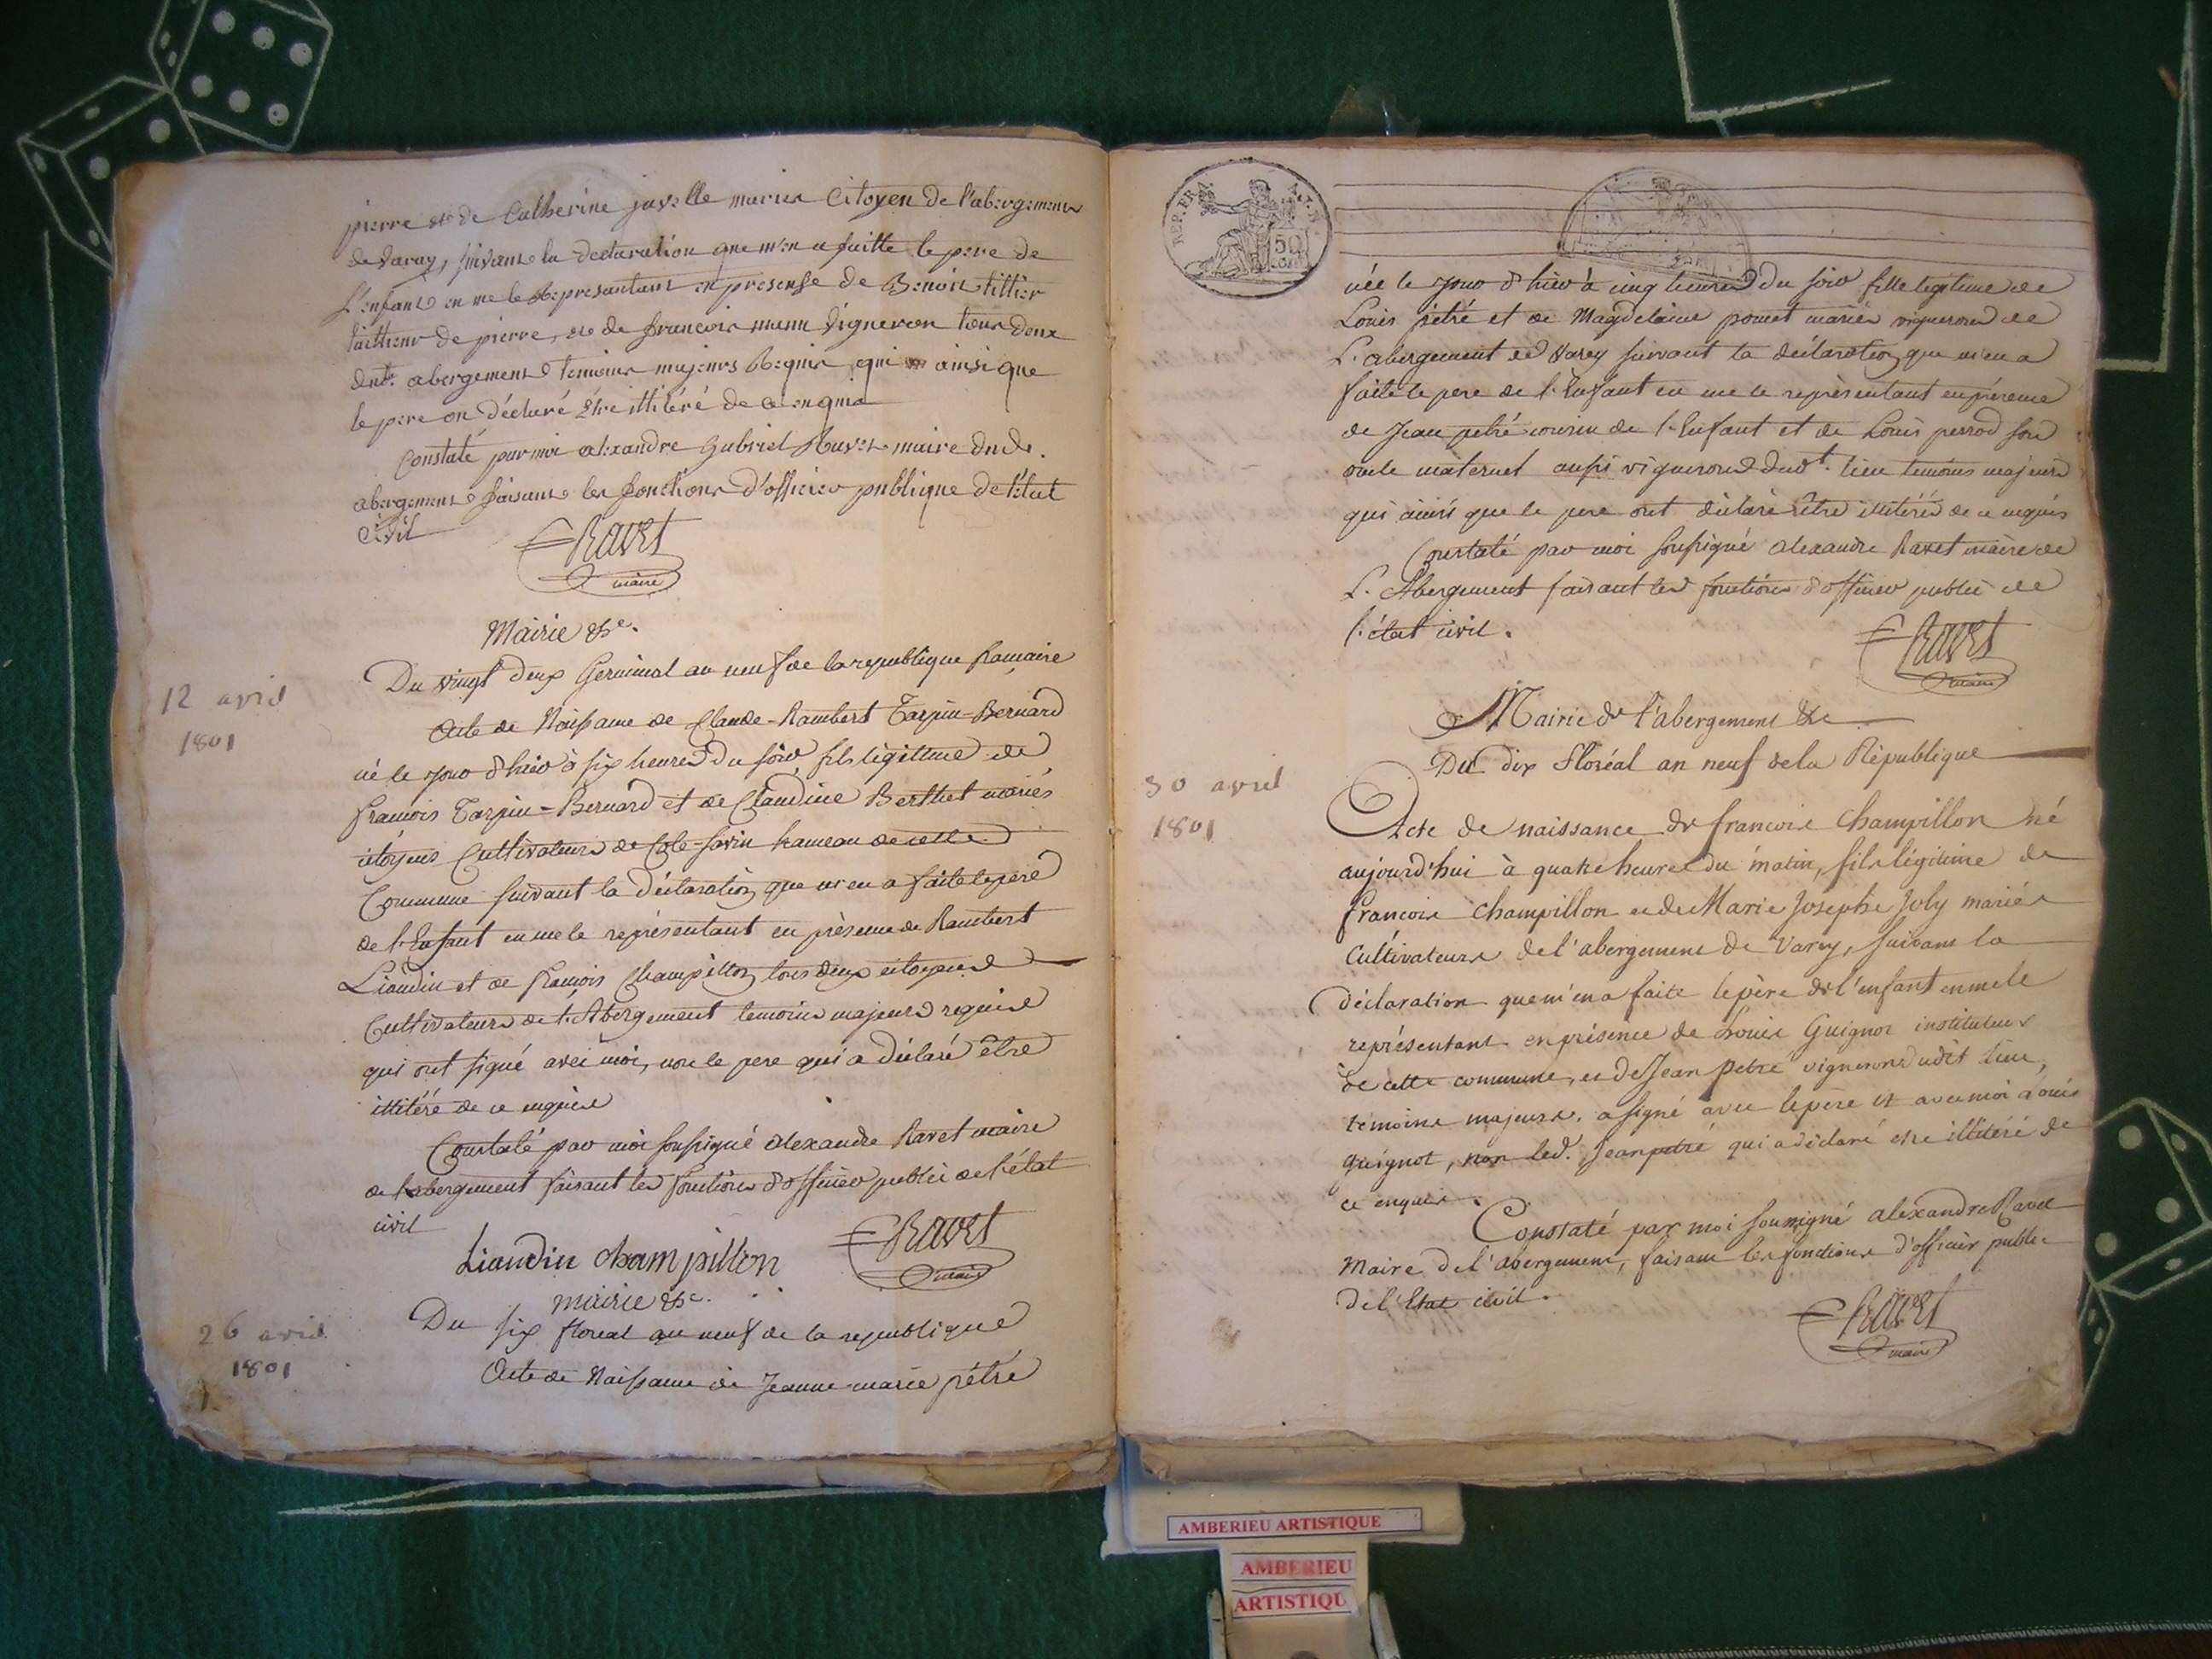 pierre et de Catherine javelle mariés Citoyen de l'abergement
de varey, suivant la declaration que m'en a faitte le pere de
L'enfant en me le Representant en presense de Benoit tillier
tailleur de pierre, et de francois munu vigneron tous deux
dud. abergement temoins majeurs Requis qui ainsi que
le pere on déclaré Etre illitéré de ce enquis
Constaté par moi alexandre Gabriel Ravet maire dud.
abergement faisant les fonctions d'officier publique de l'état
Civil
Ravet
maire
Mairie &c.
12 avril
1801
Du vingt deux Germinal an neuf de la republique francaise
Acte de Naissance de Claude-Rambert Tarpin-Bernard
né le jour d'hier à six heures du soir fils légitime de
francois Tarpin-Bernard et de Claudine Berthet mariés
citoyens Cultivateurs de Cote-savin hameau de cette
Commune suivant la déclaration que m'en a faite le pere
de l'Enfant en me le représentant en présence de Rambert
Liaudin et de francois Champillon tous deux citoyens
Cultivateurs de l'Abergement temoins majeurs requis
qui ont signé avec moi, non le pere qui a déclaré être
illitéré de ce enquis
Constaté par moi soussigné alexandre Ravet maire
de l'abergement faisant les fonctions d'officier public de l'état
civil
Liaudin Champillon
Ravet
maire
mairie &c.
26 avril
1801
Du six floreal an neuf de la republique
Acte de Naissance de Jeanne-marie pétré
REP. FRA
50
née le jour d'hier à cinq heures du soir fille legitime de
Louis pétré et de Magdelaine pomet mariés vignerons de
L'abergement de Varey suivant la déclaration que m'en a
faite le pere de l'Enfant en me le représentant en présence
de Jean petré cousin de l'Enfant et de Louis perrod son
oncle maternel aussi vignerons dudt. lieu temoins majeurs
qui ainsi que le pere ont déclaré être illitérés de ce enquis
Constaté par moi soussigné alexandre Ravet maire de
L'Abergement faisant les fonctions d'officier public de
l'état civil.
Ravet
maire
Mairie de l'abergement &c
30 avril
1801
Du dix floréal an neuf de la République
Acte de naissance de francois Champillon né
aujourd'hui à quatre heures du matin, fils légitime de
francois Champillon et de Marie Josephe Joly mariés
Cultivateurs de l'abergement de Varey, suivant la
déclaration que m'en a faite le père de l'enfant en me le
représentant en présence de Louis Guignot instituteur
de cette commune, et de Jean petré vigneron dudit lieu,
témoins majeurs, a signé avec le père et avec moi Louis
guignot, non led. Jean petré qui a déclaré etre illitéré de
ce enquis.
Constaté par moi soussigné alexandre Ravet
Maire de l'abergement, faisant les fonctions d'officier public
de l'Etat civil.
Ravet
maire
AMBERIEU ARTISTIQUE
AMBERIEU
ARTISTIQU